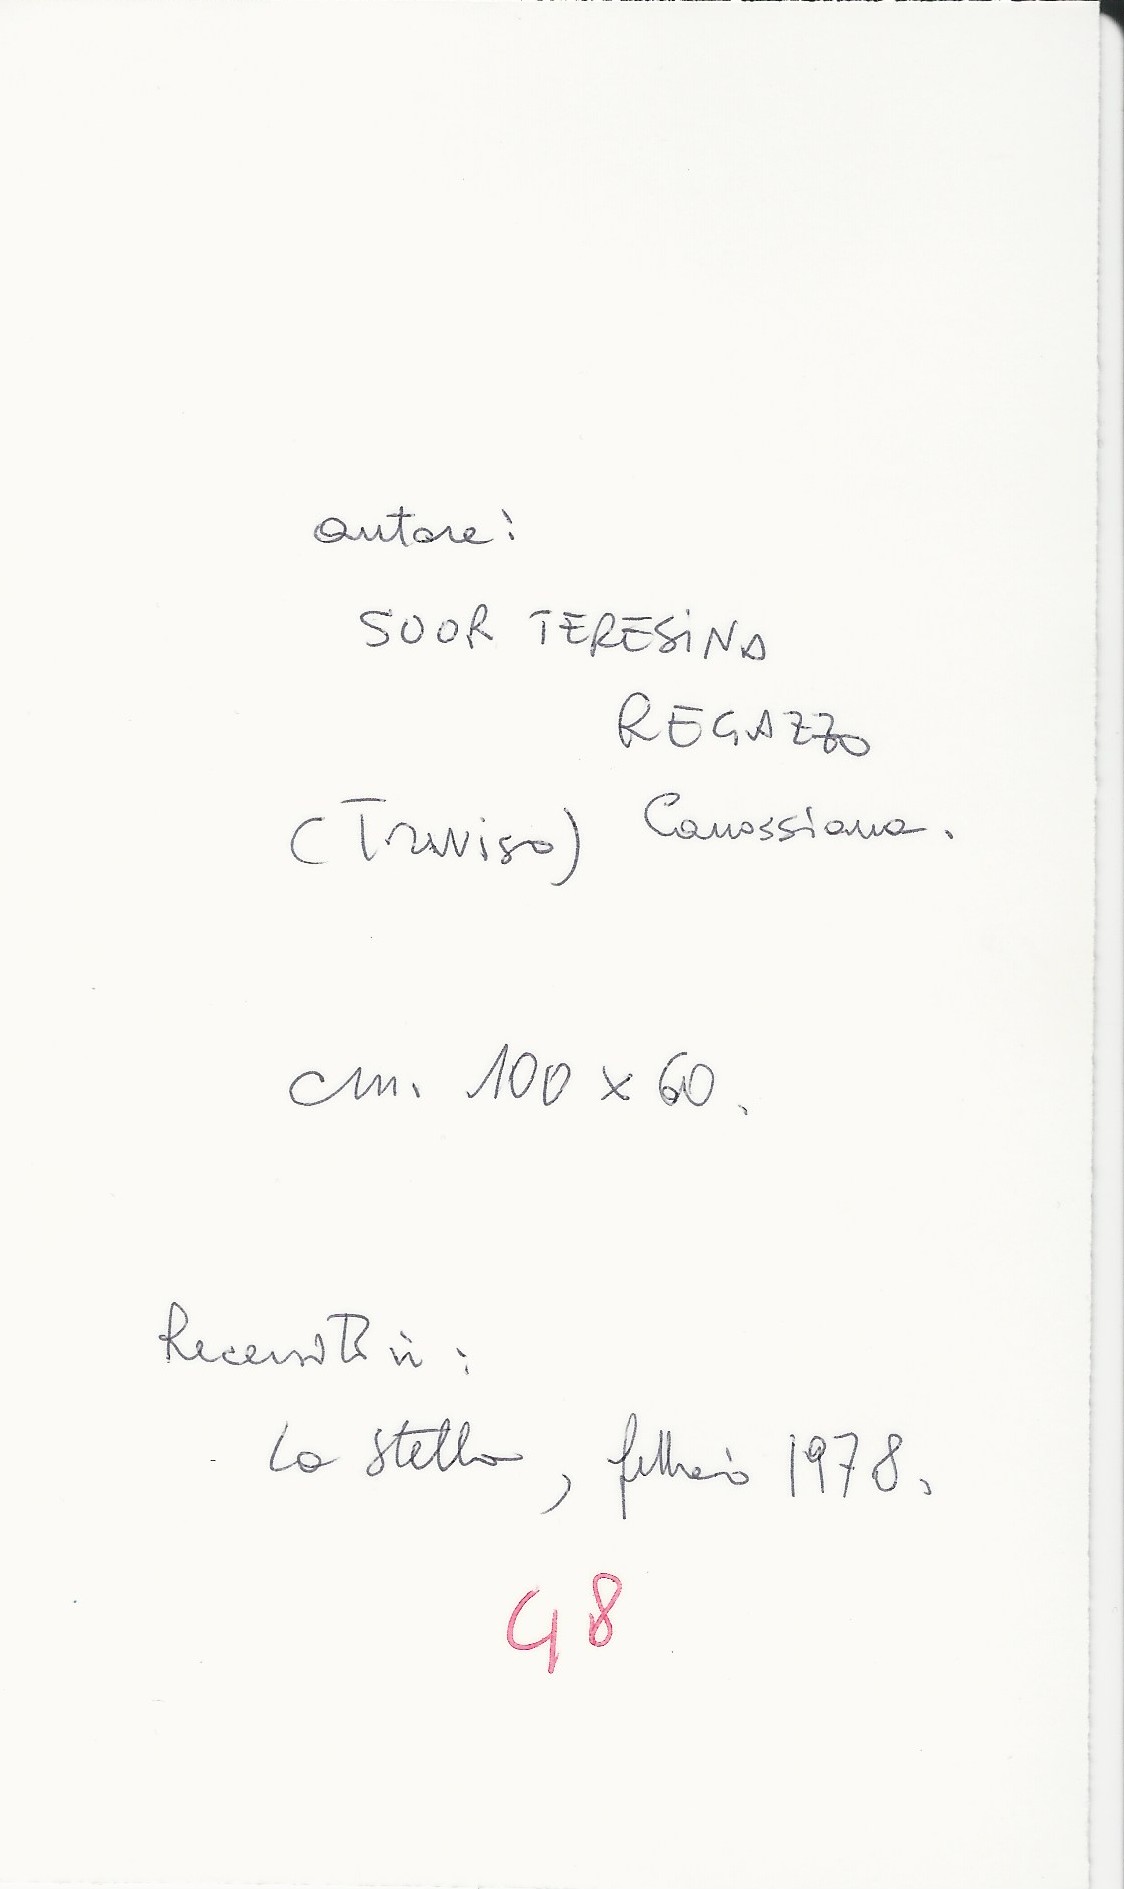 autore:
SOOR TERESINA
REGAZZO
(Treviso) Canossiana.
cm. 100 x 60.
Recensito in:
La Stella, febbraio 1978.
G8